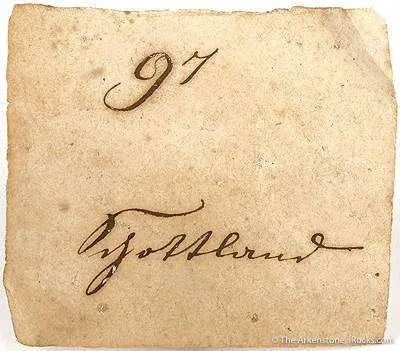 97
Schottland
© The Arkenstone, iRocks.com